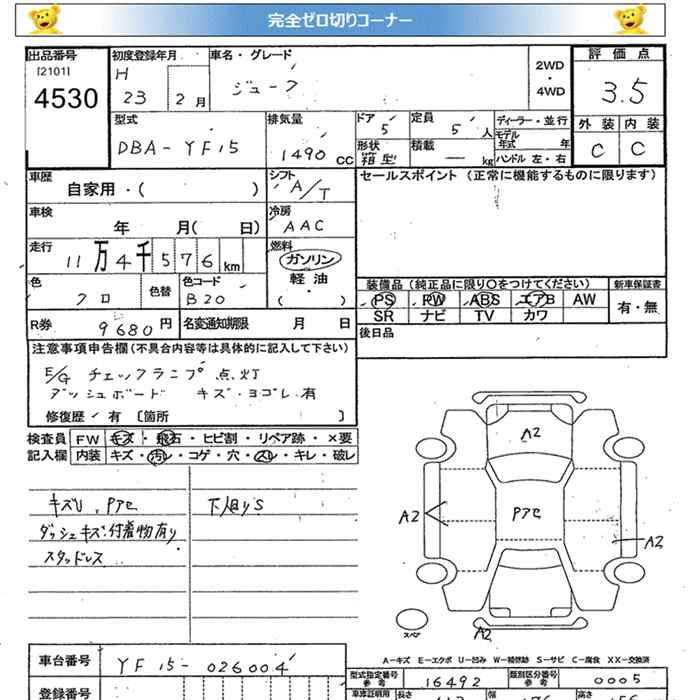 完全ゼロ切りコーナー
出品番号 初度登録年月 車名・グレード 2WD・4WD 評価点
[2101] H
4530 23 2月 ジューク 3.5
外装 内装
型式 排気量 ドア 定員 ディーラー・並行
DBA-YF15 1490 CC 5 5 人 モデル年式 年 C C
形状 積載
箱型 — kg ハンドル 左・右
車歴 シフト セールスポイント (正常に機能するものに限ります)
自家用・( ) A/T
車検 冷房
年 月( 日) AAC
走行 燃料
11万4千576km ガソリン
軽油
( ・ )
色 色替 色コード 装備品 (純正品に限り○をつけてください) 新車保証書
クロ B20 PS PW ABS エアB AW 有・無
SR ナビ TV カワ
R券 9680円 名変通知期限 月 日 後日品
注意事項申告欄(不具合内容等は具体的に記入して下さい)
E/G チェックランプ 点灯
ダッシュボード キズ・ヨゴレ 有
修復歴/有 [箇所 ]
検査員 FW キズ・飛石・ヒビ割・リペア跡・×要
記入欄 内装 キズ・汚レ・コゲ・穴・スレ・キレ・破レ
キズU、Pアセ 下廻りS
ダッシュキズ・付着物有り
スタッドレス
A2
A2 Pアセ A2
スペア A2
A-キズ E-エクボ U-凹み W-補修跡 S-サビ C-腐食 XX-交換済
車台番号 YF15-026004
型式指定番号 参考 16492 類別区分番号 参考 0005
登録番号
長さ 幅 高さ